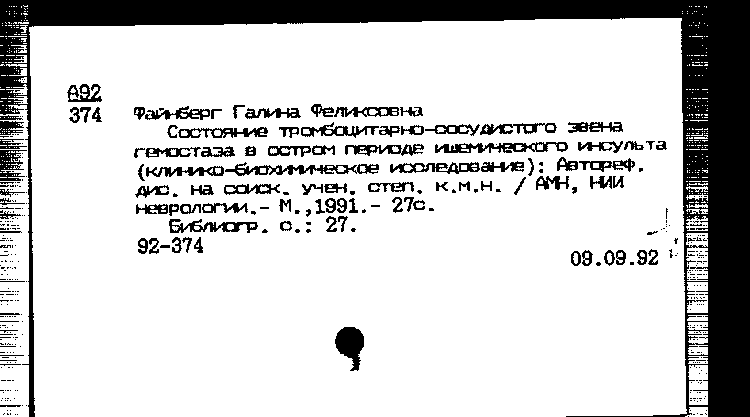 А92
374 Файнберг Галина Феликсовна
Состояние тромбоцитарно-сосудистого звена
гемостаза в остром периоде ишемического инсульта
(клинико-биохимическое исследование): Автореф.
дис. на соиск. учен. степ. к.м.н. / АМН, НИИ
неврологии.- М.,1991.- 27с.
Библиогр. с.: 27.
92-374
09.09.92